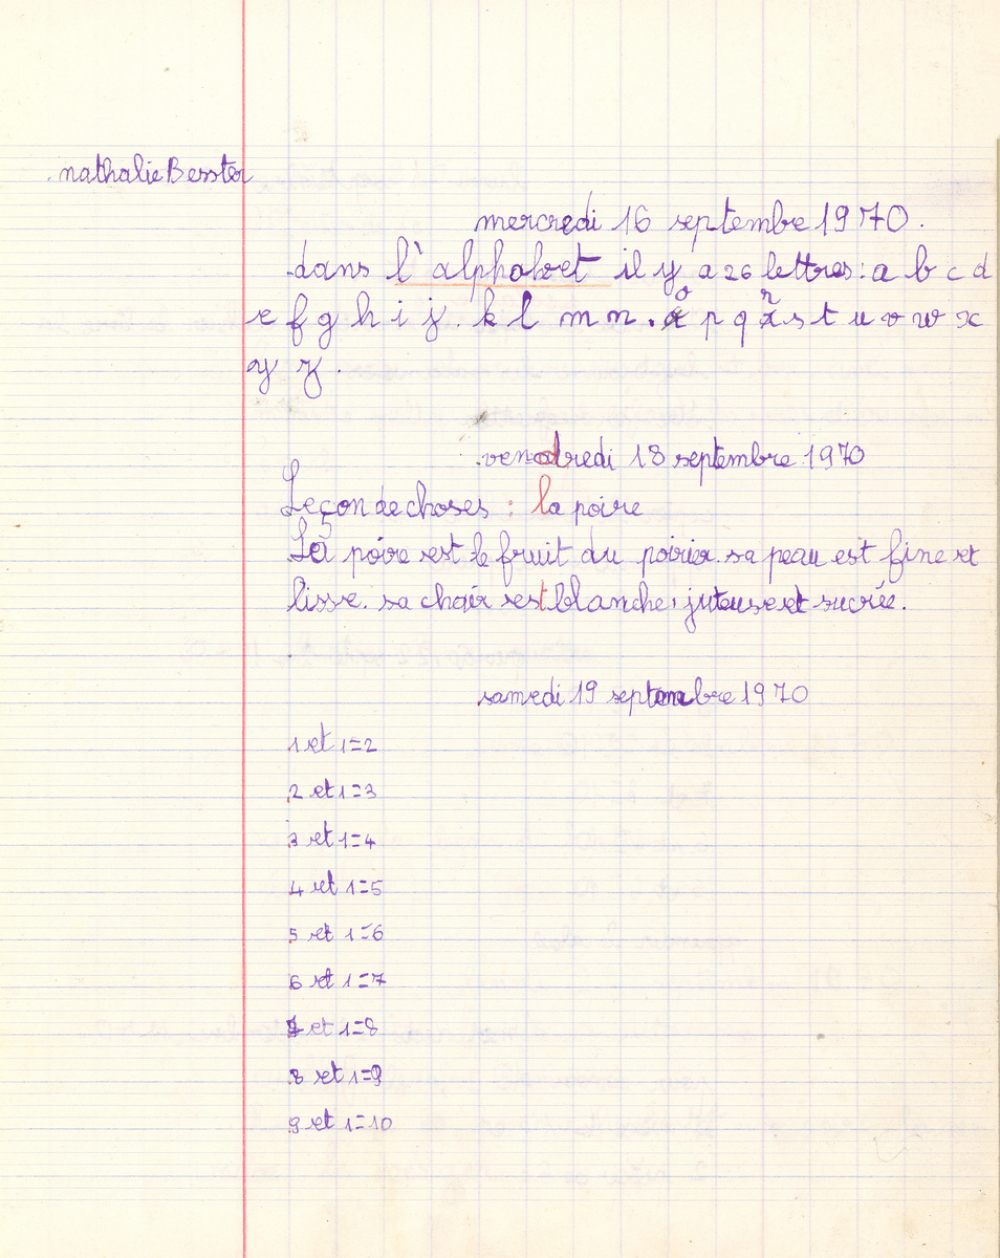 nathalie Besster
mercredi 16 septembe 1970.
dans l'alphabet il y a 26 lettres : a b c d
e f g h i j. k l m n. o p q r s t u v w x
y z.
vendredi 18 septembre 1970
Leçon de choses : la poire
La poire est le fruit du poirier. sa peau est fine et
lisse. sa chair est blanche, juteuse et sucrée.
samedi 19 septembre 1970
1 et 1=2
2 et 1=3
3 et 1=4
4 et 1=5
5 et 1=6
6 et 1=7
7 et 1=8
8 et 1=9
9 et 1=10